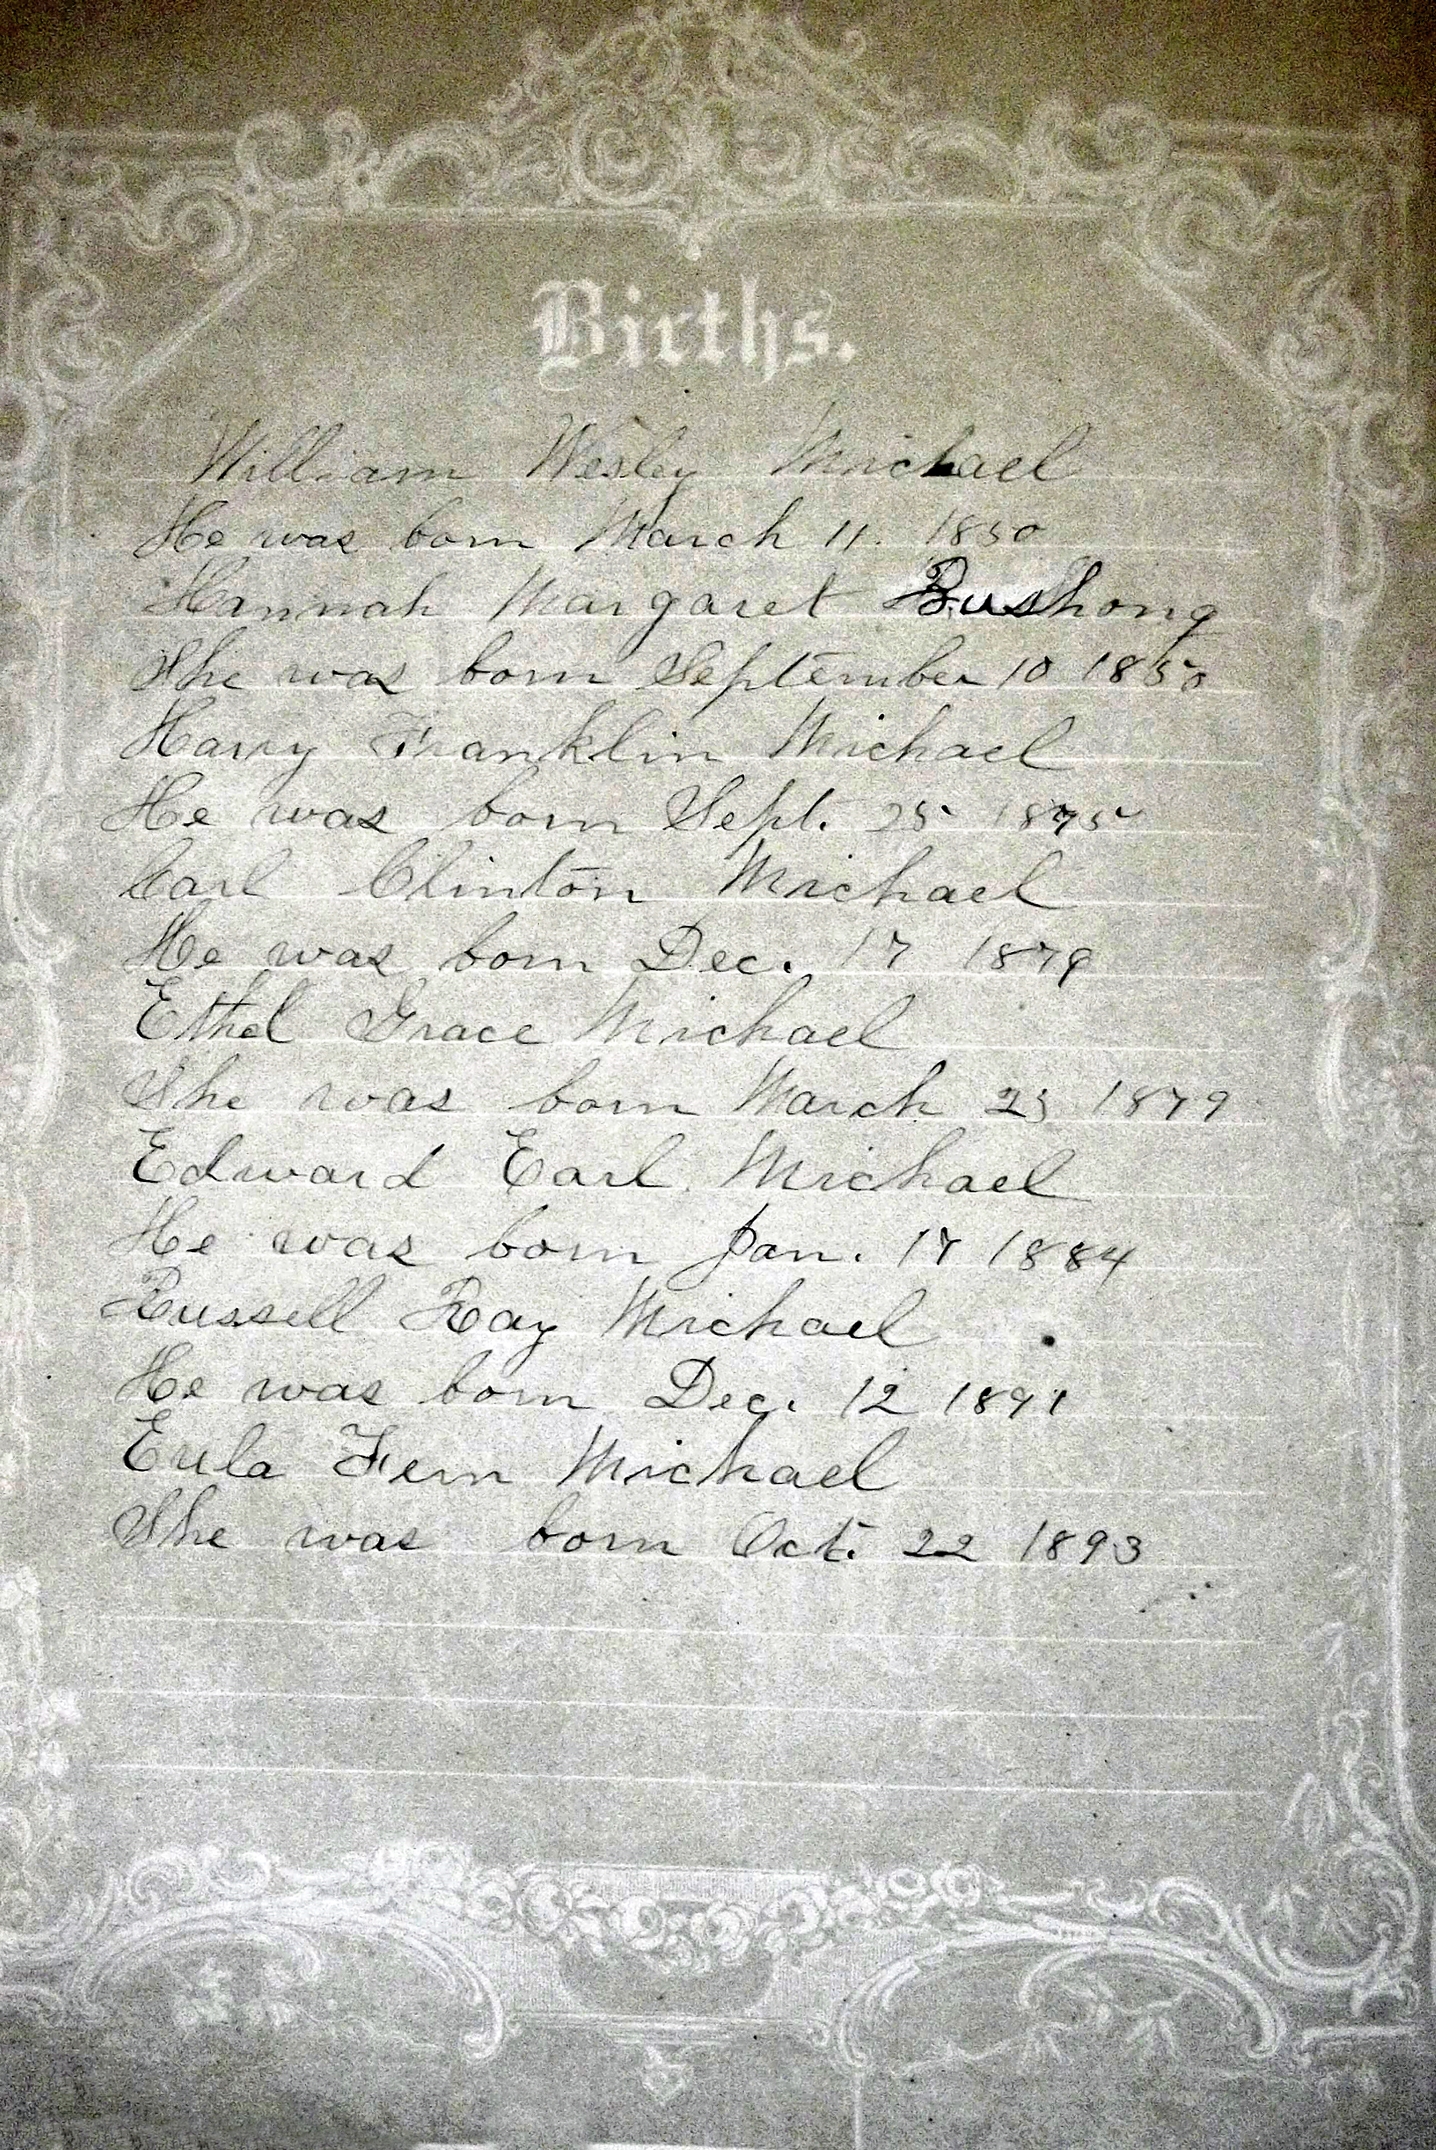 Births.
William Wesley Michael
He was born March 11. 1850
Hannah Margaret Bushong
She was born September 10 1850
Harry Franklin Michael
He was born Sept. 25 1875
Carl Clinton Michael
He was born Dec. 17 1879
Ethel Grace Michael
She was born March 23 1879
Edward Earl Michael
He was born Jan. 17 1884
Russell Ray Michael
He was born Dec. 12 1891
Eula Fern Michael
She was born Oct. 22 1893